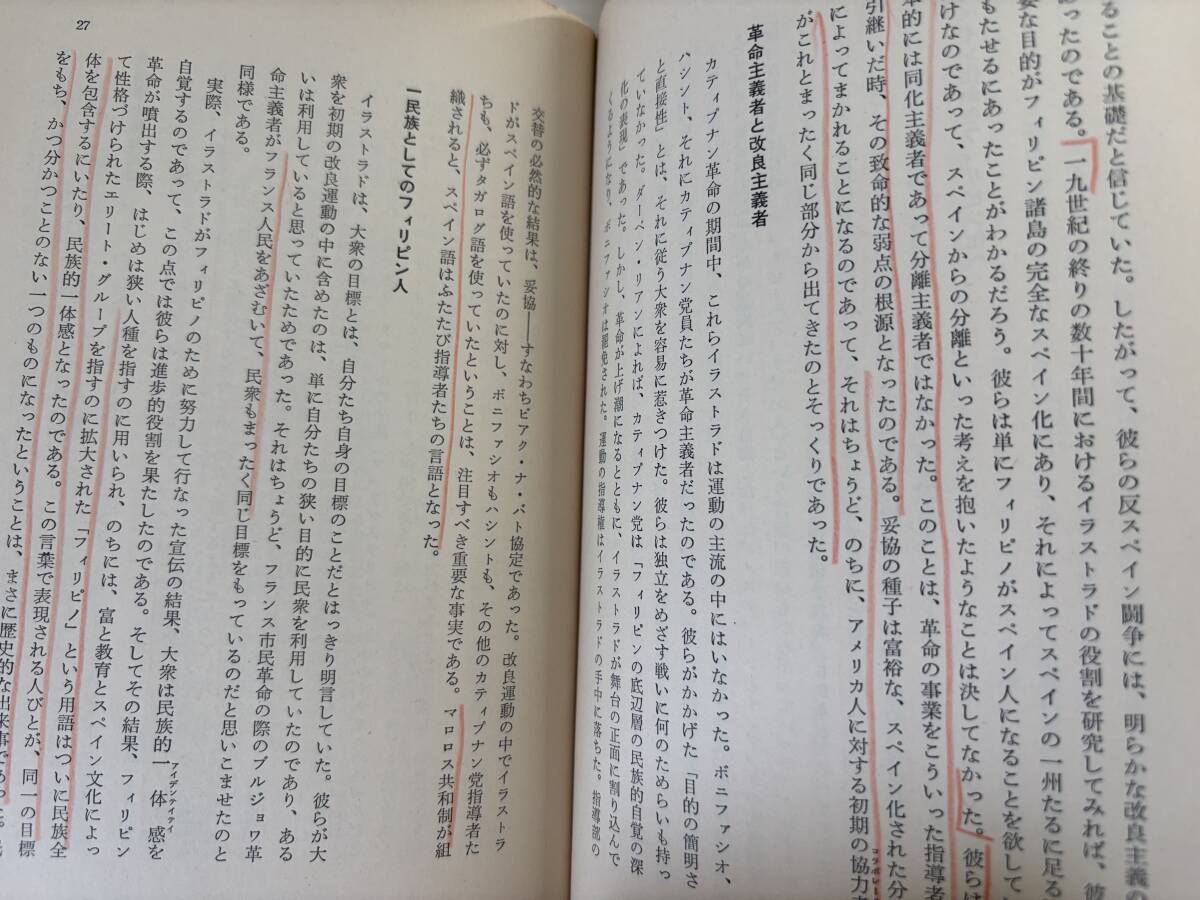 ることの基礎だと信じていた。したがって、彼らの反スペイン闘争には、明らかな改良主義の
ったのである。一九世紀の終りの数十年間におけるイラストラドの役割を研究してみれば、彼
要な目的がフィリピン諸島の完全なスペイン化にあり、それによってスペインの一州たるに足る
もたせるにあったことがわかるだろう。彼らは単にフィリピノがスペイン人になることを欲して
けなのであって、スペインからの分離といった考えを抱いたようなことは決してなかった。彼らは
本的には同化主義者であって分離主義者ではなかった。このことは、革命の事業をこういった指導者
引継いだ時、その致命的な弱点の根源となったのである。妥協の種子は富裕な、スペイン化された分
によってまかれることになるのであって、それはちょうど、のちに、アメリカ人に対する初期の協力
がこれとまったく同じ部分から出てきたのとそっくりであった。
革命主義者と改良主義者
カティプナン革命の期間中、これらイラストラドは運動の主流の中にはいなかった。ボニファシオ、
ハシント、それにカティプナン党員たちが革命主義者だったのである。彼らがかかげた「目的の簡明さ
と直接性」とは、それに従う大衆を容易に惹きつけた。彼らは独立をめざす戦いに何のためらいも持っ
ていなかった。ダーベン・リアンによれば、カティプナン党は「フィリピンの底辺層の民族的自覚の深
化の表現」であった。しかし、革命が上げ潮になるとともに、イラストラドが舞台の正面に割り込んで
くるようになり、ボニファシオは罷免された。運動の指導権はイラストラドの手中に落ちた。指導部の
27
交替の必然的な結果は、妥協――すなわちビアク・ナ・バト協定であった。改良運動の中でイラストラ
ドがスペイン語を使っていたのに対し、ボニファシオもハシントも、その他のカティプナン党指導者た
ちも、必ずタガログ語を使っていたということは、注目すべき重要な事実である。マロロス共和制が組
織されると、スペイン語はふたたび指導者たちの言語となった。
一民族としてのフィリピン人
イラストラドは、大衆の目標とは、自分たち自身の目標のことだとはっきり明言していた。彼らが大
衆を初期の改良運動の中に含めたのは、単に自分たちの狭い目的に民衆を利用していたのであり、ある
いは利用していると思っていたためであった。それはちょうど、フランス市民革命の際のブルジョワ革
命主義者がフランス人民をあざむいて、民衆もまったく同じ目標をもっているのだと思いこませたのと
同様である。
実際、イラストラドがフィリピノのために努力して行なった宣伝の結果、大衆は民族的一体感を
アイデンティティ
自覚するのであって、この点では彼らは進歩的役割を果たしたのである。そしてその結果、フィリピン
革命が噴出する際、はじめは狭い人種を指すのに用いられ、のちには、富と教育とスペイン文化によっ
て性格づけられたエリート・グループを指すのに拡大された「フィリピノ」という用語はついに民族全
体を包含するにいたり、民族的一体感となったのである。この言葉で表現される人びとが、同一の目標
をもち、かつ分かつことのない一つのものになったということは、まさに歴史的な出来事であった。